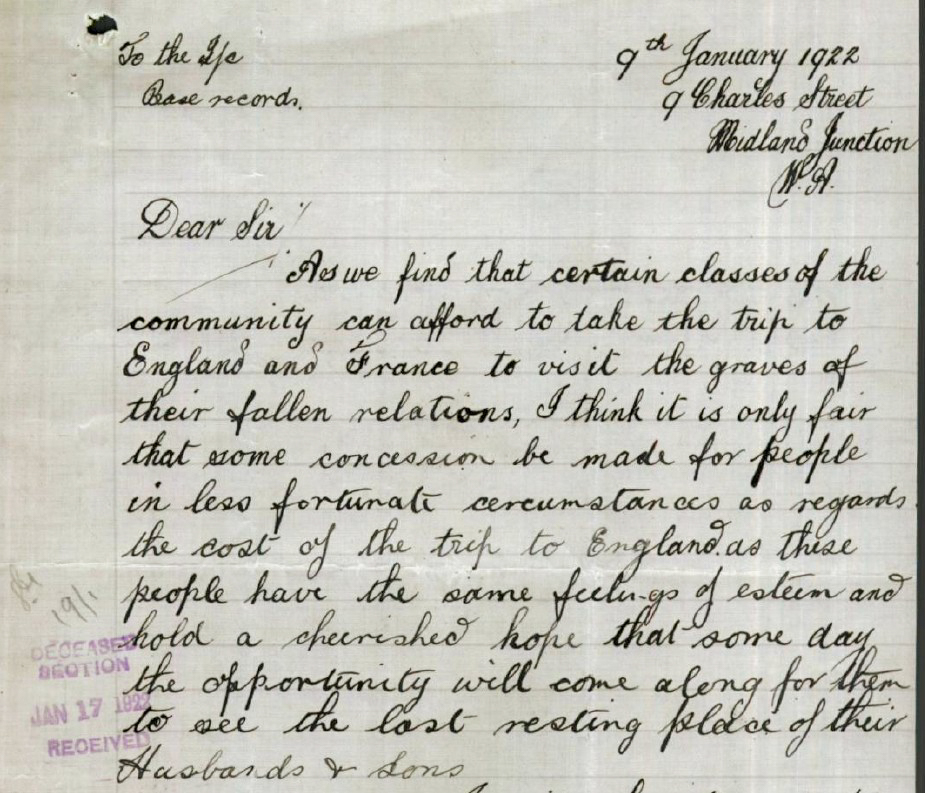 To the I/c
Base records.
9th January 1922
9 Charles Street
Midland Junction
W.A.
Dear Sir
As we find that certain classes of the
community can afford to take the trip to
England and France to visit the graves of
their fallen relations, I think it is only fair
that some concession be made for people
in less fortunate cercumstances as regards
the cost of the trip to England. as these
people have the same feelings of esteem and
hold a cheerished hope that some day
the opportunity will come along for them
to see the last resting place of their
Husbands & Sons
19/1
DECEASED
SECTION
JAN 17 1922
RECEIVED